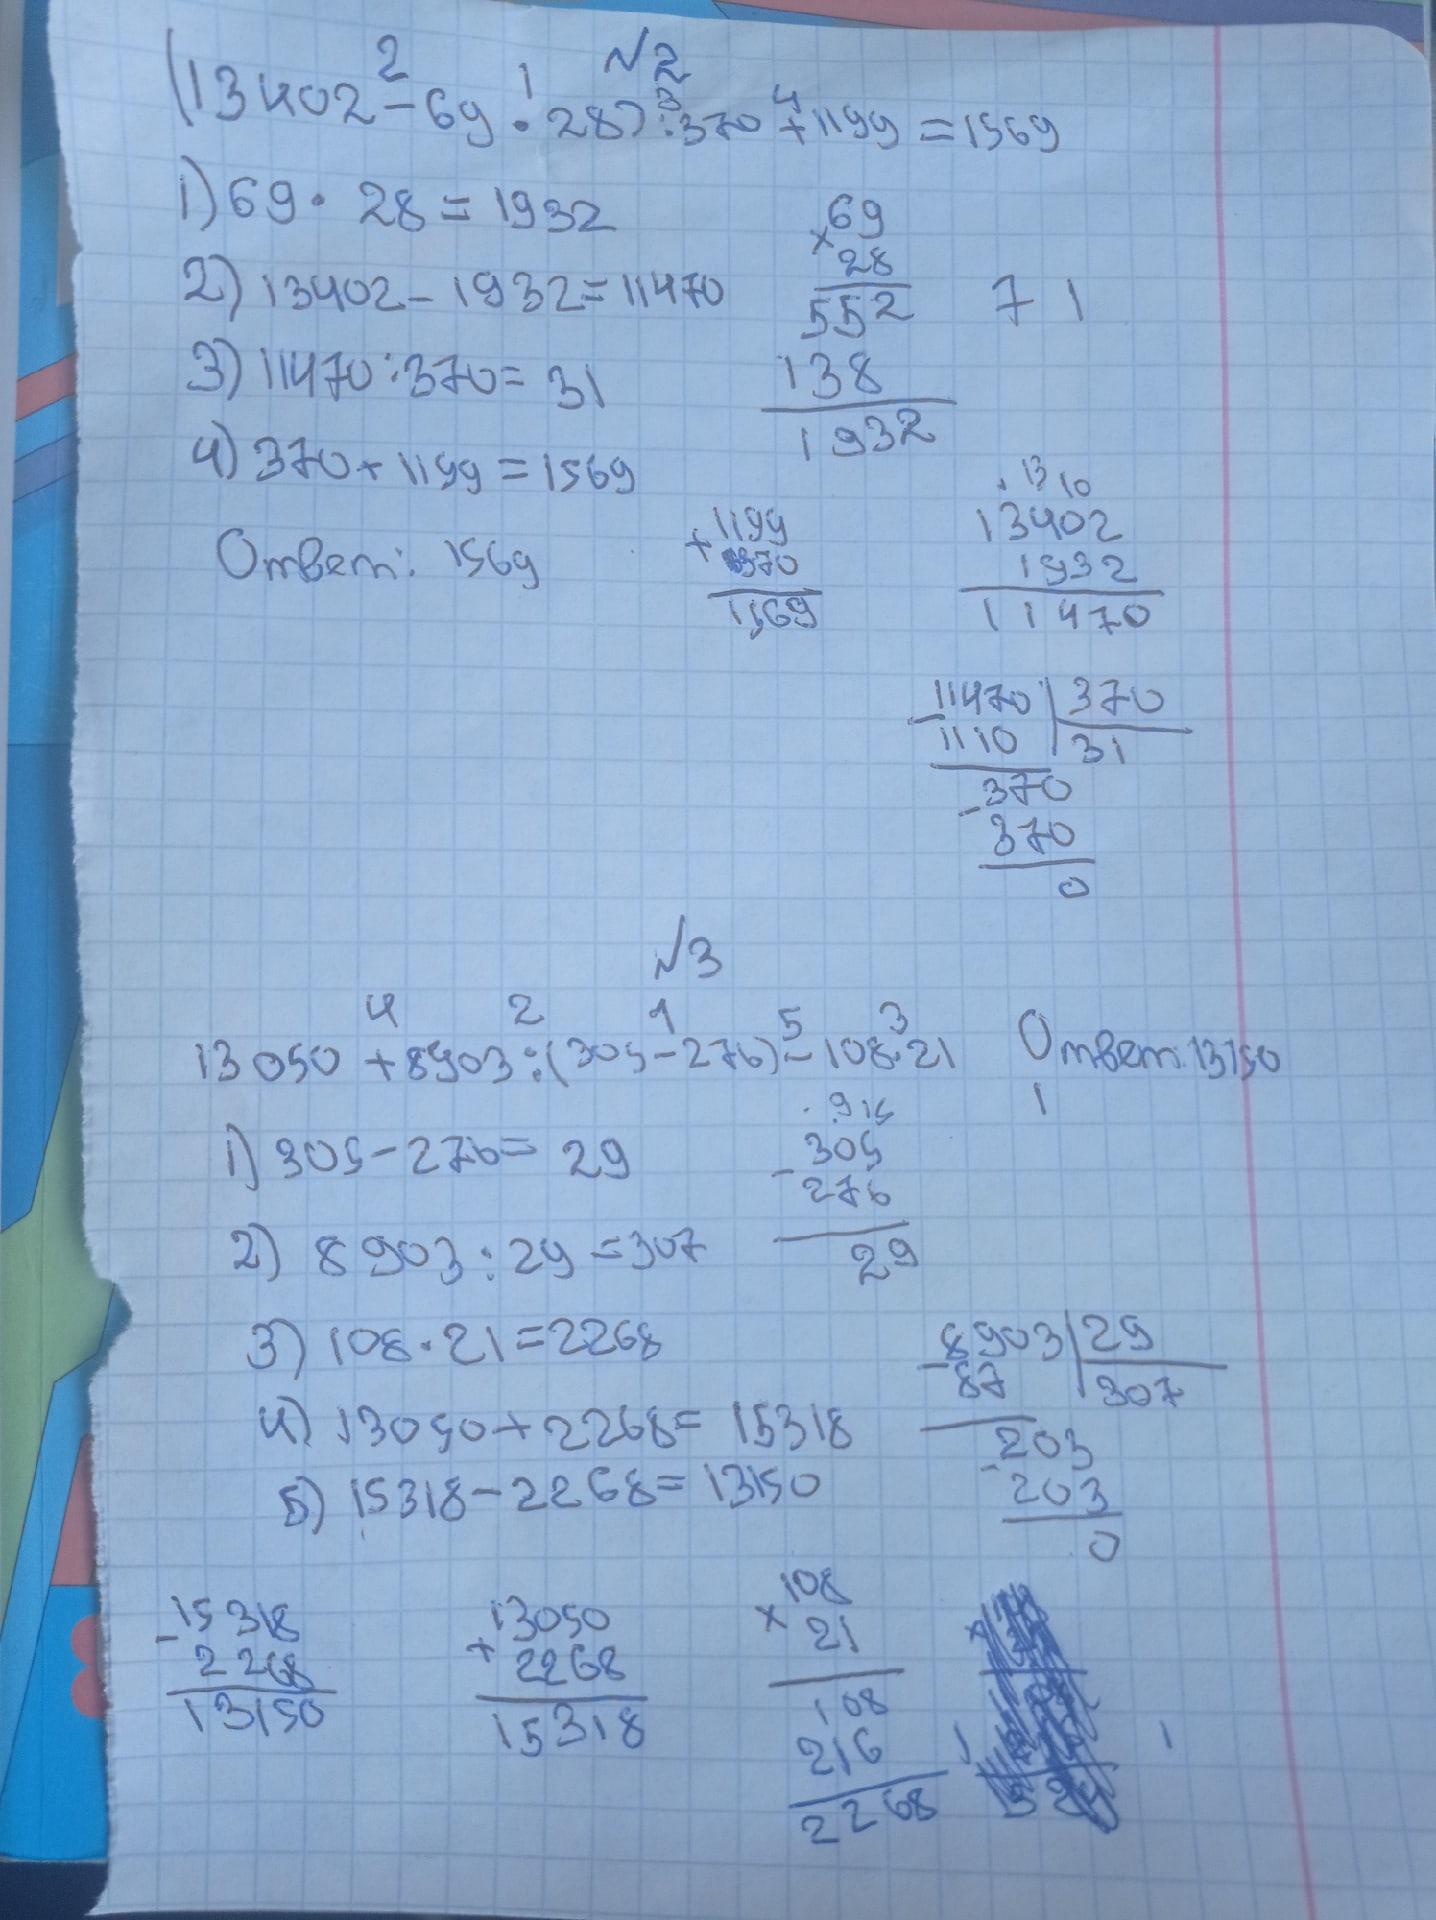 №2
(13402 - 69 · 28) : 370 + 1199 = 1569
2 1 3 4
1) 69 · 28 = 1932
2) 13402 - 1932 = 11470
3) 11470 : 370 = 31
4) 370 + 1199 = 1569
Ответ: 1569
× 69
28
552
138
1932
7 1
+ 1199
370
1569
. 13 10
13402
1932
11470
- 11470 | 370
1110 | 31
- 370
370
0
№3
4 2 1 5 3
13050 + 8903 : (305 - 276) - 108 · 21
Ответ: 13150
1
1) 305 - 276 = 29
2) 8903 : 29 = 307
3) 108 · 21 = 2268
4) 13050 + 2268 = 15318
5) 15318 - 2268 = 13150
. 9 15
- 305
276
29
- 8903 | 29
87 | 307
- 203
203
0
- 15318
2268
13150
+ 13050
2268
15318
× 108
21
108
216
2268
1 1